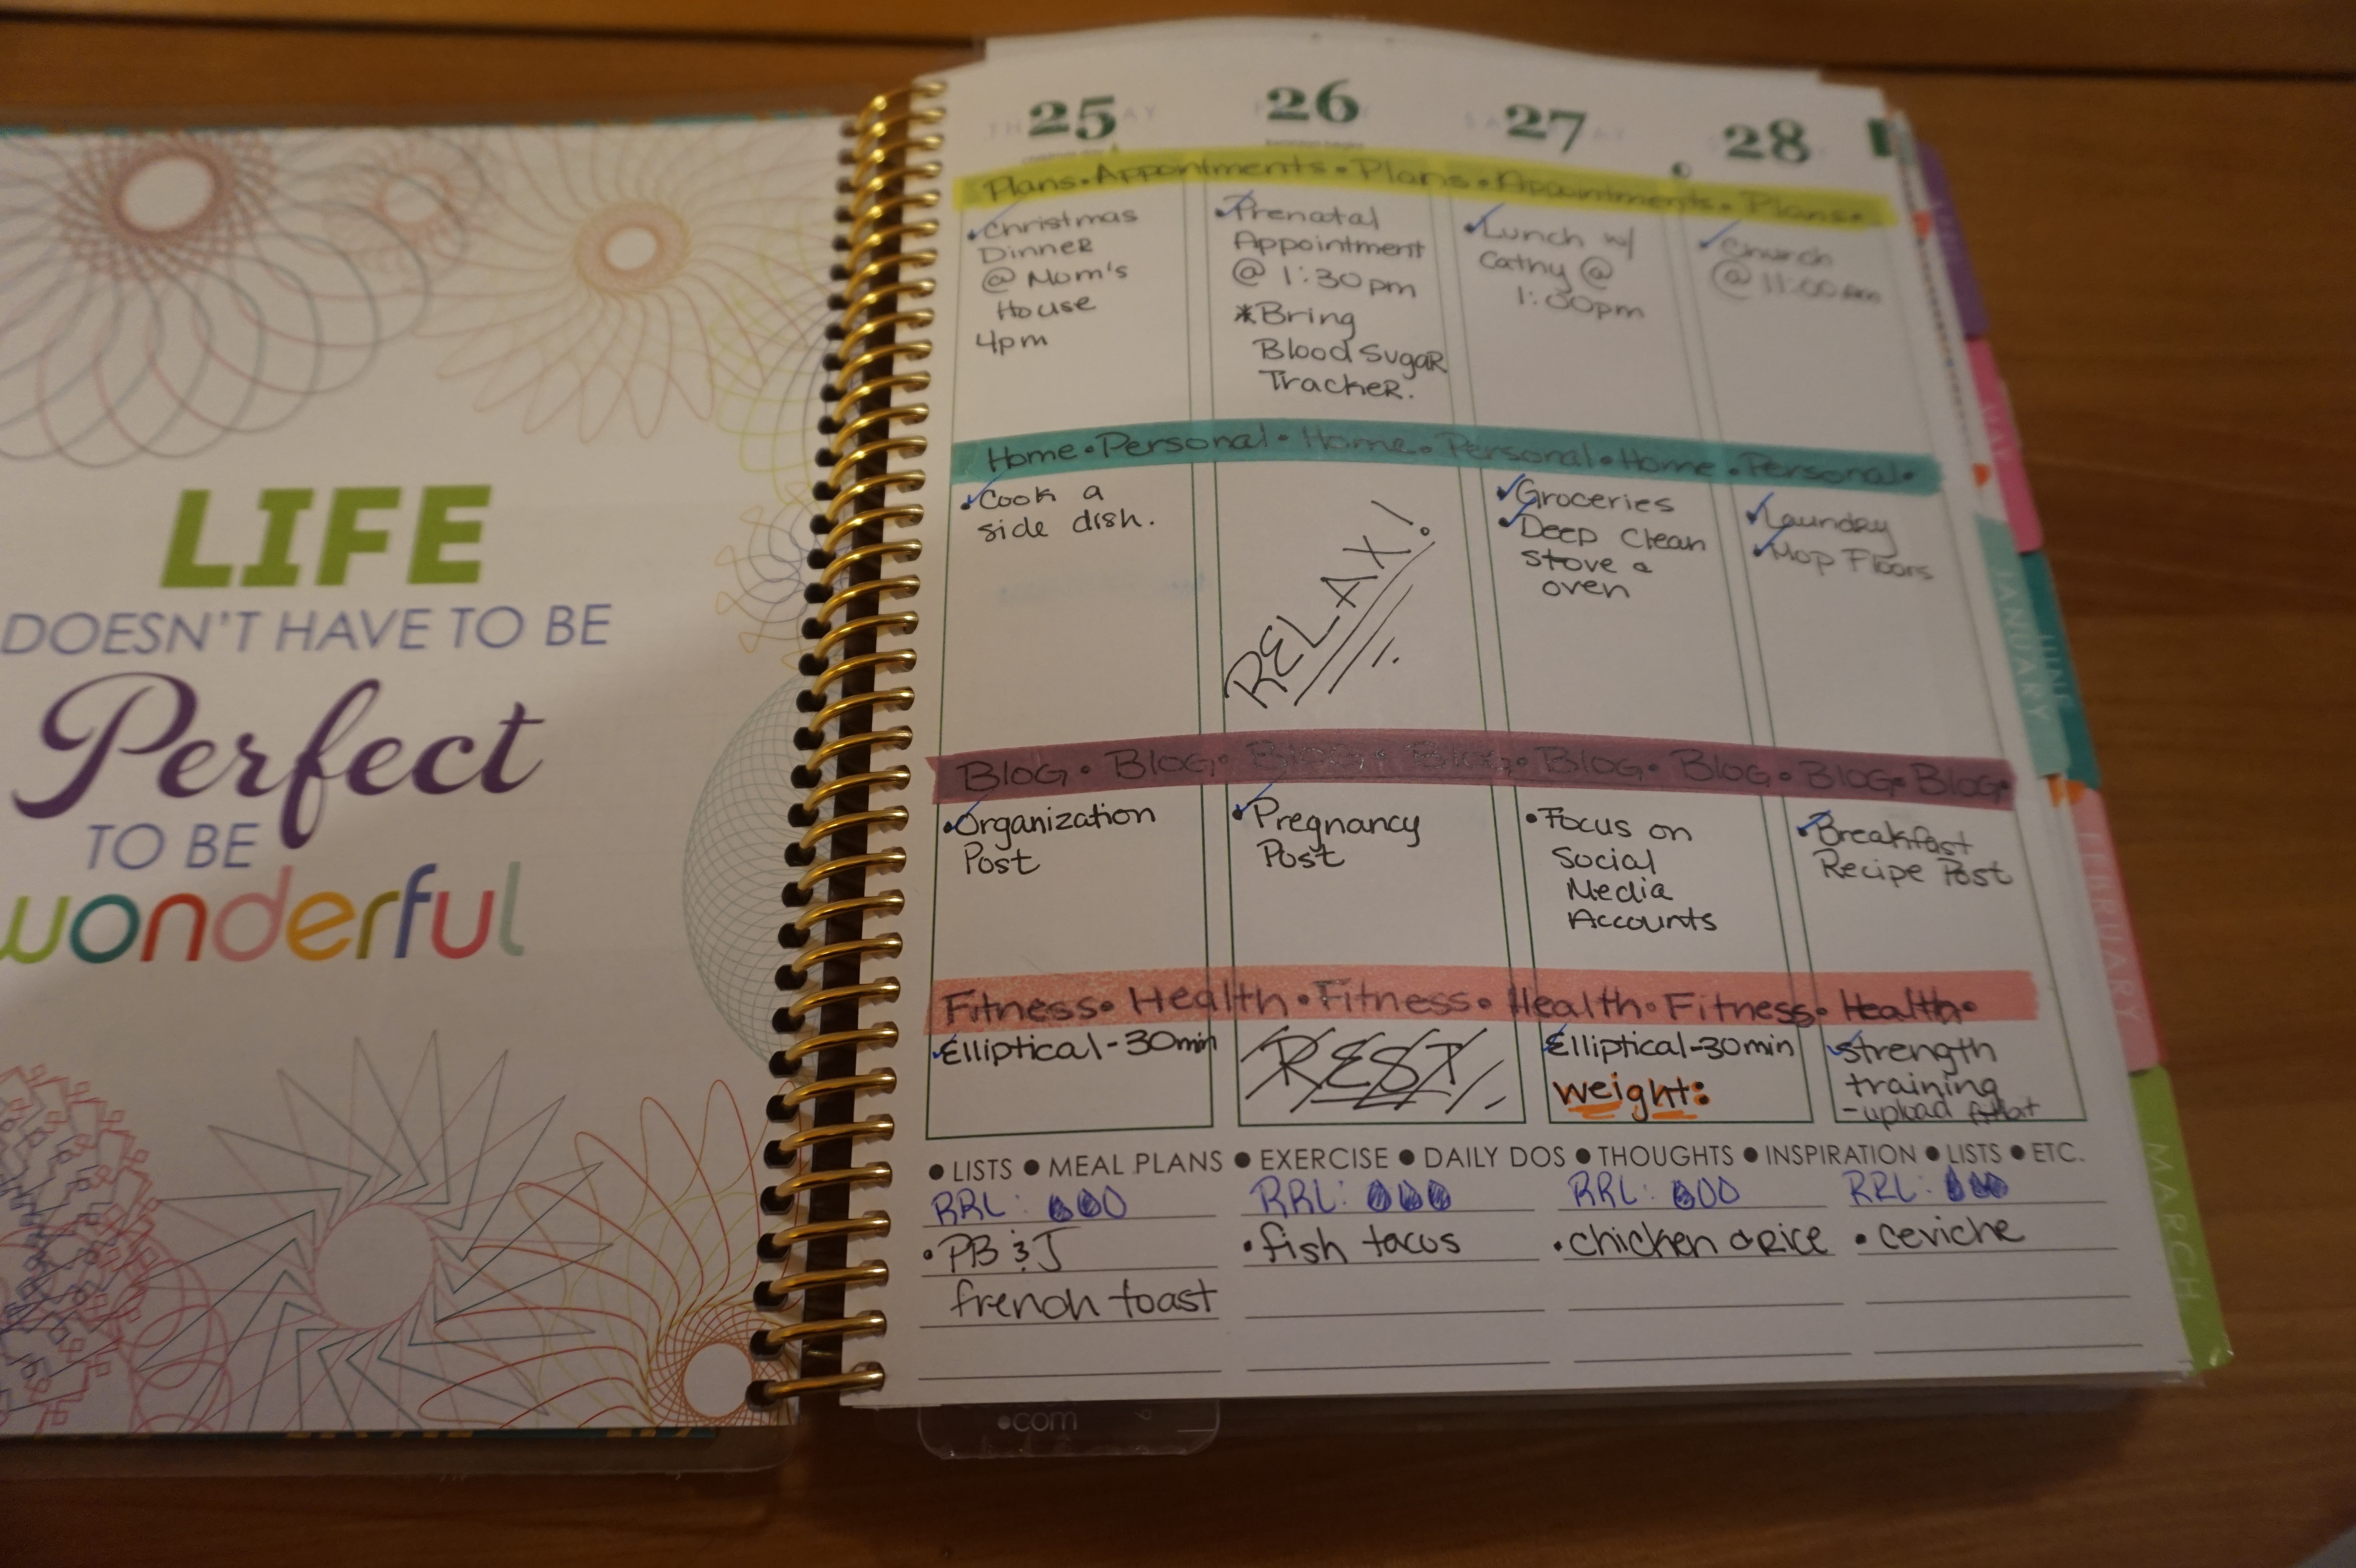 LIFE
DOESN'T HAVE TO BE
Perfect
TO BE
wonderful
25 26 27 28
Plans • Appointments • Plans • Appointments • Plans •
• Christmas
Dinner
@ Mom's
House
4pm
• Prenatal
Appointment
@ 1:30pm
*Bring
Blood Sugar
Tracker.
• Lunch w/
Cathy @
1:00pm
• Church
@ 11:00am
Home • Personal • Home • Personal • Home • Personal •
• Cook a
side dish.
RELAX!
• Groceries
• Deep Clean
stove &
oven
• Laundry
• Mop Floors
Blog • Blog • Blog • Blog • Blog • Blog • Blog • Blog •
• Organization
Post
• Pregnancy
Post
• Focus on
Social
Media
Accounts
• Breakfast
Recipe Post
Fitness • Health • Fitness • Health • Fitness • Health •
Elliptical - 30min
REST
Elliptical - 30min
weight:
strength
training
- upload
● LISTS ● MEAL PLANS ● EXERCISE ● DAILY DOS ● THOUGHTS ● INSPIRATION ● LISTS ● ETC.
RRL: RRL: RRL: RRL:
• PB & J
french toast
• fish tacos
• chicken & rice
• ceviche
•com
MAY
JUNE
JANUARY
FEBRUARY
MARCH